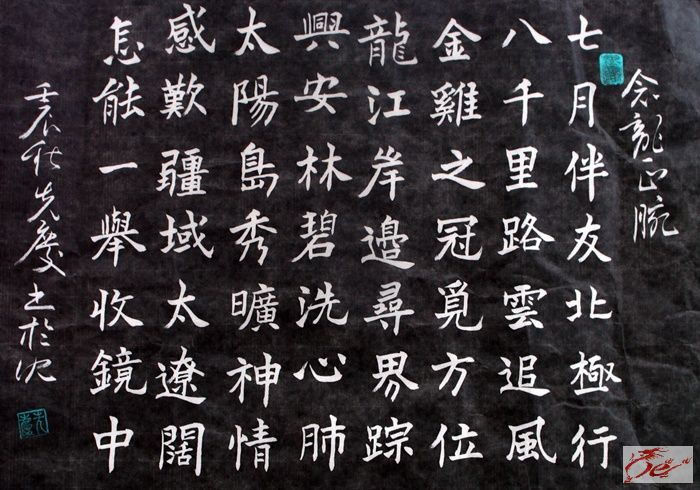 念龍正腕
七月伴友北極行
八千里路雲追風
金雞之冠覓方位
龍江岸邊尋界踪
興安林碧洗心肺
太陽島秀曠神情
感歎疆域太遼闊
怎能一舉收鏡中
壬辰秋先慶书於沈